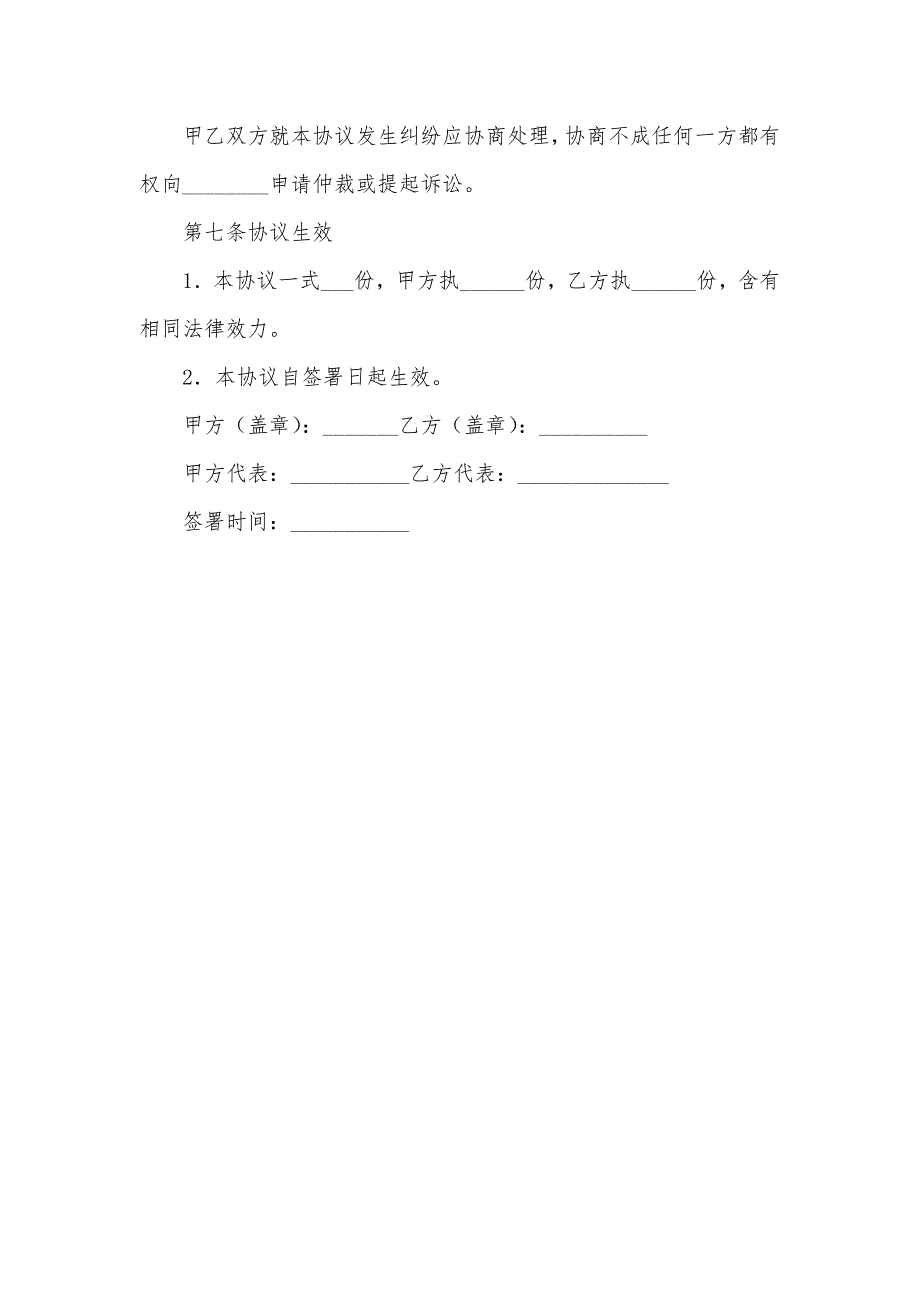 甲乙双方就本协议发生纠纷应协商处理，协商不成任何一方都有
权向________申请仲裁或提起诉讼。
第七条协议生效
1．本协议一式___份，甲方执______份，乙方执______份，含有
相同法律效力。
2．本协议自签署日起生效。
甲方（盖章）：_______乙方（盖章）：__________
甲方代表：___________乙方代表：______________
签署时间：___________